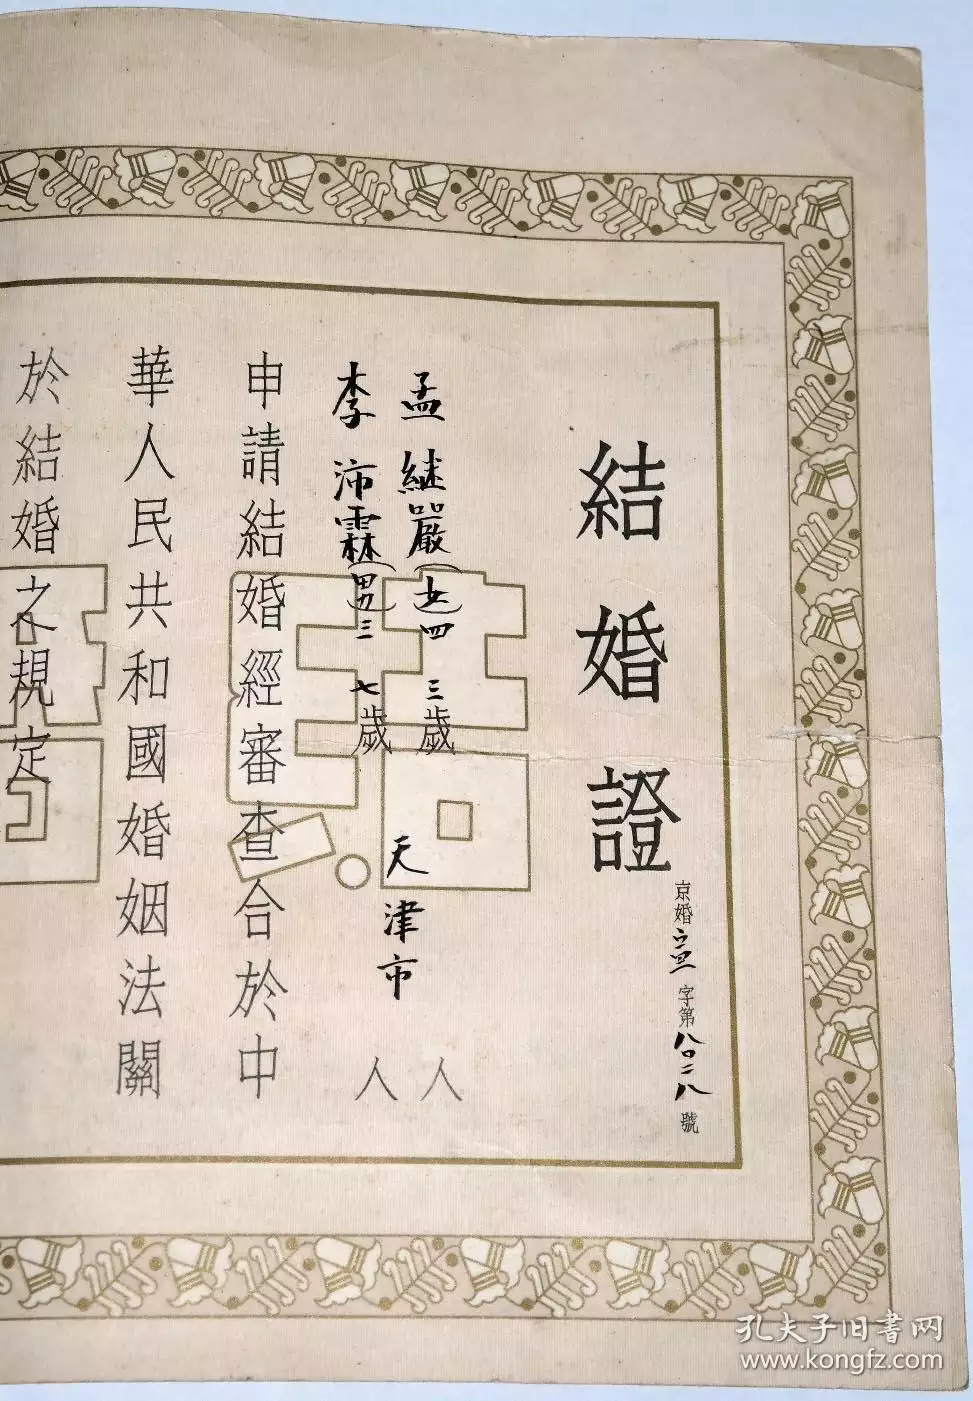 結婚證
京婚字第八〇二八號
孟継嚴（女）四三歲 天津市人
李沛霖（男）三七歲 天津市人
申請結婚經審查合於中
華人民共和國婚姻法關
於結婚之規定
孔夫子旧书网
www.kongfz.com